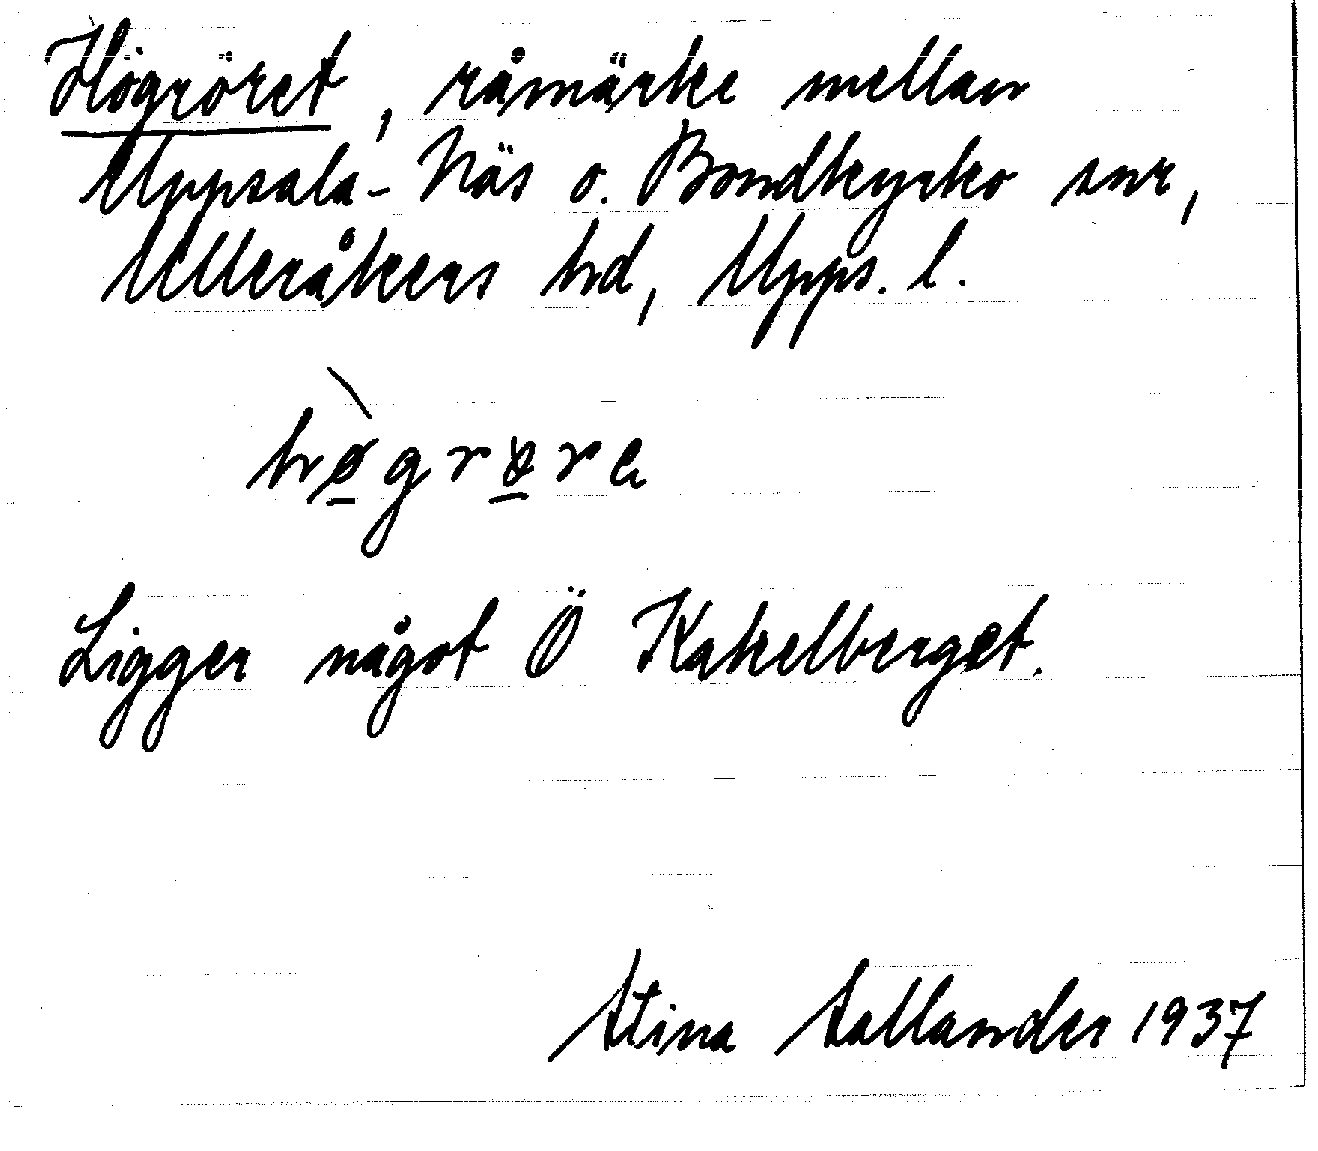 Högröret, råmärke mellan
Uppsala-Näs o. Bondkyrko snr,
Ulleråkers hd, Upps. l.
hø̲̀grø̲re
Ligger något Ö Kakelberget.
Stina Sallander 1937